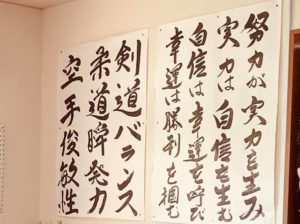 努力が実力を生み
実力は自信を生む
自信は幸運を呼び
幸運は勝利を掴む
剣道バランス
柔道瞬発力
空手俊敏性